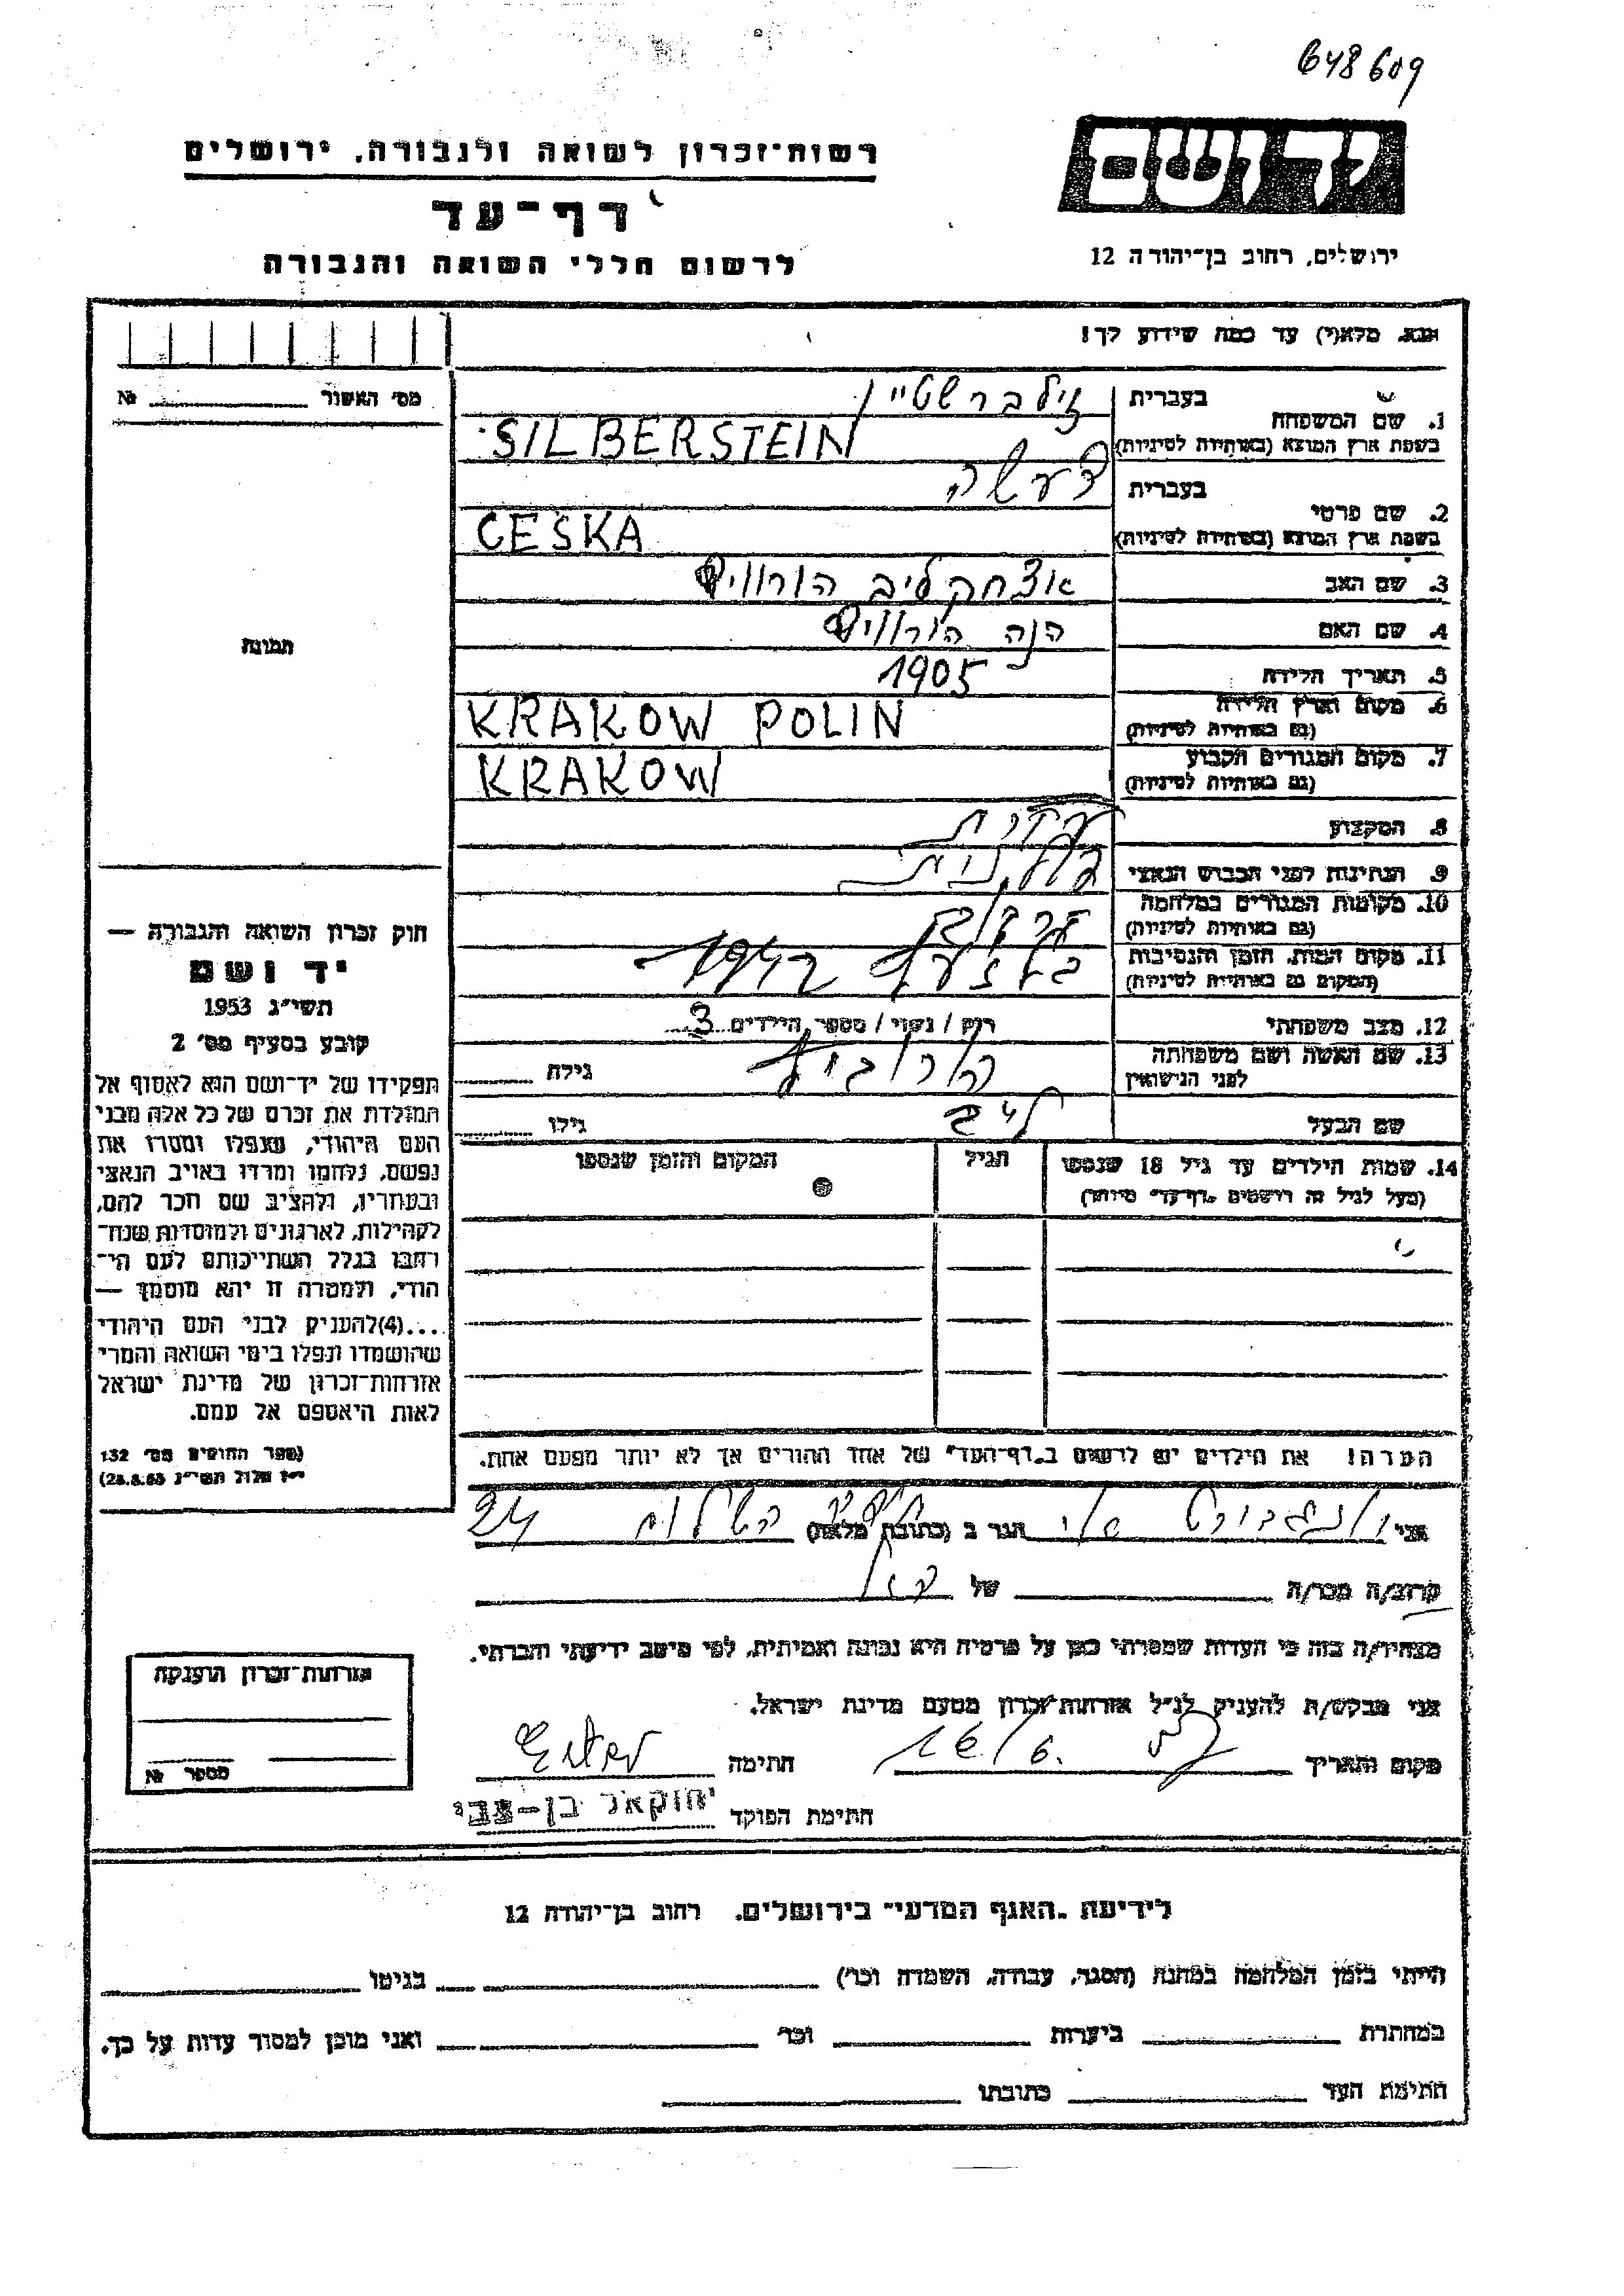 648609
רשות-זכרון לשואה ולגבורה, ירושלים
דף-עד
לרשום חללי השואה והגבורה
יד ושם
ירושלים, רחוב בן-יהודה 12
נא מלא(י) עד כמה שידוע לך!
מס' האשור № 
1. שם המשפחה בעברית זילברשטיין
בשפת ארץ המוצא (באותיות לטיניות) SILBERSTEIN
2. שם פרטי בעברית
בשפת ארץ המוצא (באותיות לטיניות) CEŠKA
3. שם האב ליב הורוויץ
4. שם האם הנה הורוויץ
5. תאריך הלידה 1905
6. מקום וארץ הלידה (גם באותיות לטיניות) KRAKOW POLIN
7. מקום המגורים הקבוע (גם באותיות לטיניות) KRAKOW
8. המקצוע
9. הנתינות לפני הכבוש הנאצי פולנית
10. מקומות המגורים במלחמה (גם באותיות לטיניות)
11. מקום המות, הזמן והנסיבות (המקום גם באותיות לטיניות) 1942
12. מצב משפחתי רווק / נשוי / מספר הילדים 3
13. שם האשה ושם משפחתה לפני הנישואין הורוביץ גילה
שם הבעל ליב גילו
14. שמות הילדים עד גיל 18 שנספו
(מעל לגיל זה רושמים "דף-עד" מיוחד)
הגיל
המקום והזמן שנספו
הערה! את הילדים יש לרשום ב"דף-העד" של אחד ההורים אך לא יותר מפעם אחת.
תמונה
חוק זכרון השואה והגבורה —
יד ושם
תשי"ג 1953
קובע בסעיף מס' 2
תפקידו של יד-ושם הוא לאסוף אל
המולדת את זכרם של כל אלה מבני
העם היהודי, שנפלו ומסרו את
נפשם, נלחמו ומרדו באויב הנאצי
ובעוזריו, ולהציב שם וזכר להם,
לקהילות, לארגונים ולמוסדות שנח-
רבו בגלל השתייכותם לעם הי-
הודי, ולמטרה זו יהא מוסמך —
...(4)להעניק לבני העם היהודי
שהושמדו ונפלו בימי השואה והמרי
אזרחות-זכרון של מדינת ישראל
לאות היאספם אל עמם.
(ספר החוקים מס' 132
י"ז אלול תשי"ג 28.8.53)
אני הגר ב (כתובת מלאה) השלום 24
קרוב/ה מכר/ה של
מצהיר/ה בזה כי העדות שמסרתי כאן על פרטיה היא נכונה ואמיתית, לפי מיטב ידיעתי והכרתי.
אני מבקש/ת להעניק לנ"ל אזרחות-זכרון מטעם מדינת ישראל.
מקום ותאריך חתימה
חתימת הפוקד יחזקאל בן-צבי
אזרחות-זכרון הוענקה
מספר №
לידיעת "האגף המדעי" בירושלים, רחוב בן-יהודה 12
הייתי בזמן המלחמה במחנה (הסגר, עבודה, השמדה וכו') בגיטו
במחתרת ביערות וכו' ואני מוכן למסור עדות על כך.
חתימת העד כתובתו